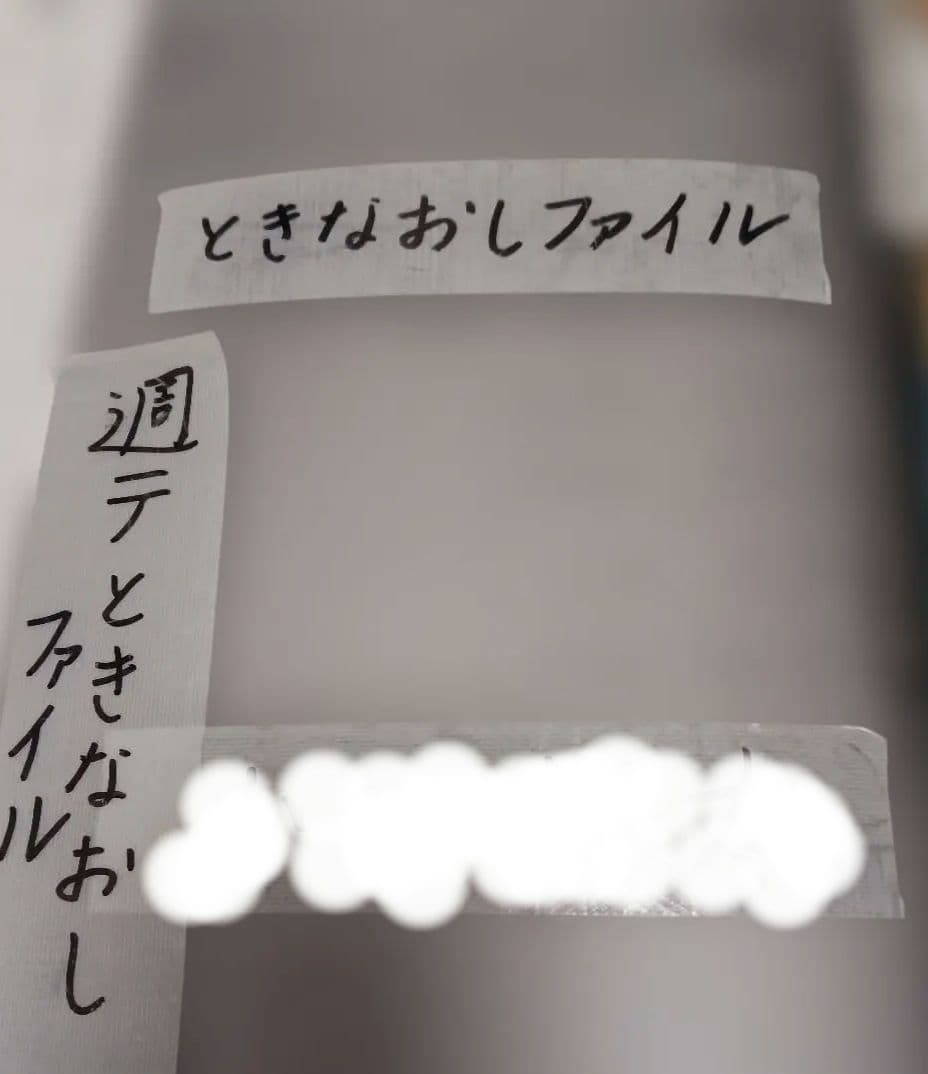 ときなおしファイル
週テときなおし
ファイル